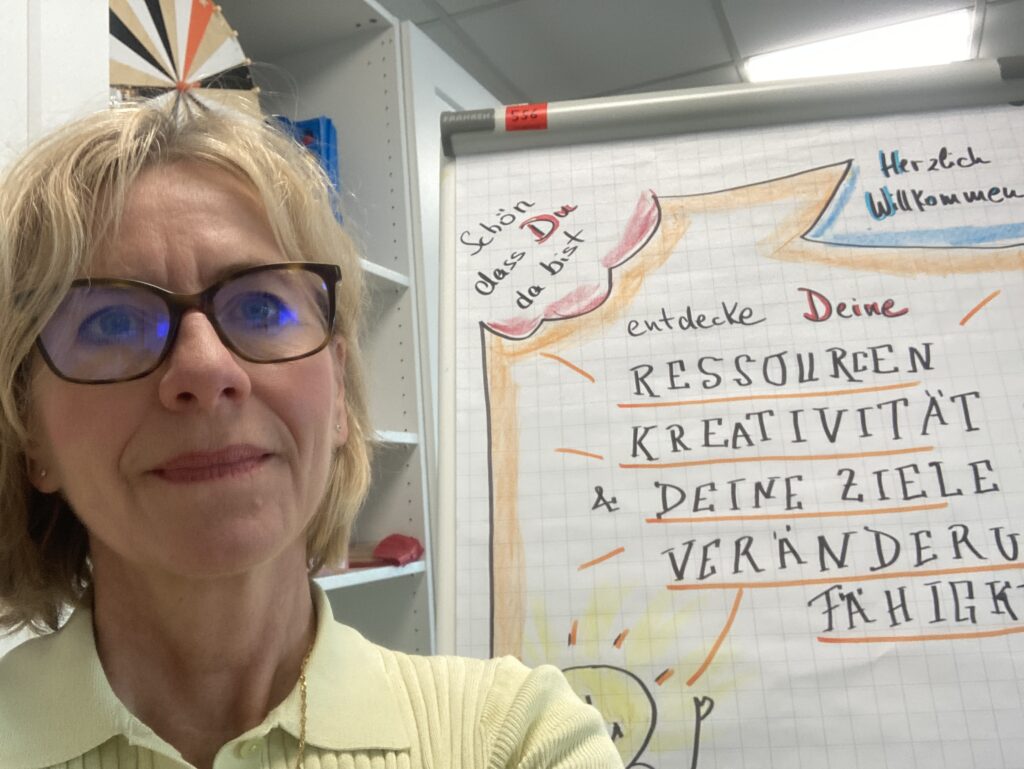 FRANKEN
556
Schön
dass Du
da bist
Herzlich
Willkommen
entdecke Deine
RESSOURCEN
KREATIVITÄT
& DEINE ZIELE
VERÄNDERU
FÄHIGK